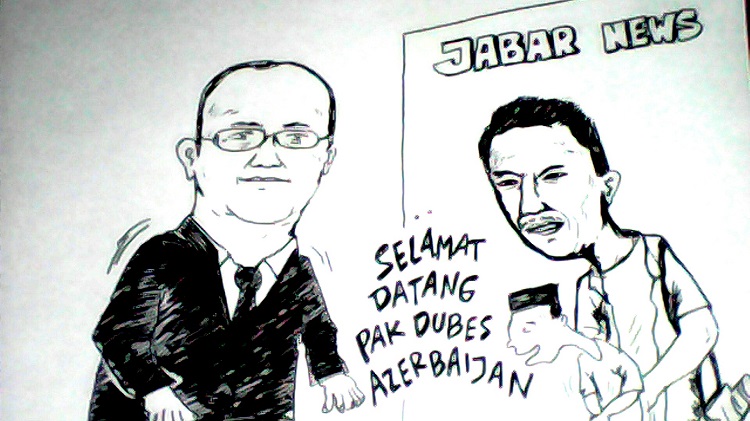 JABAR NEWS
SELAMAT
DATANG
PAK DUBES
AZERBAIJAN